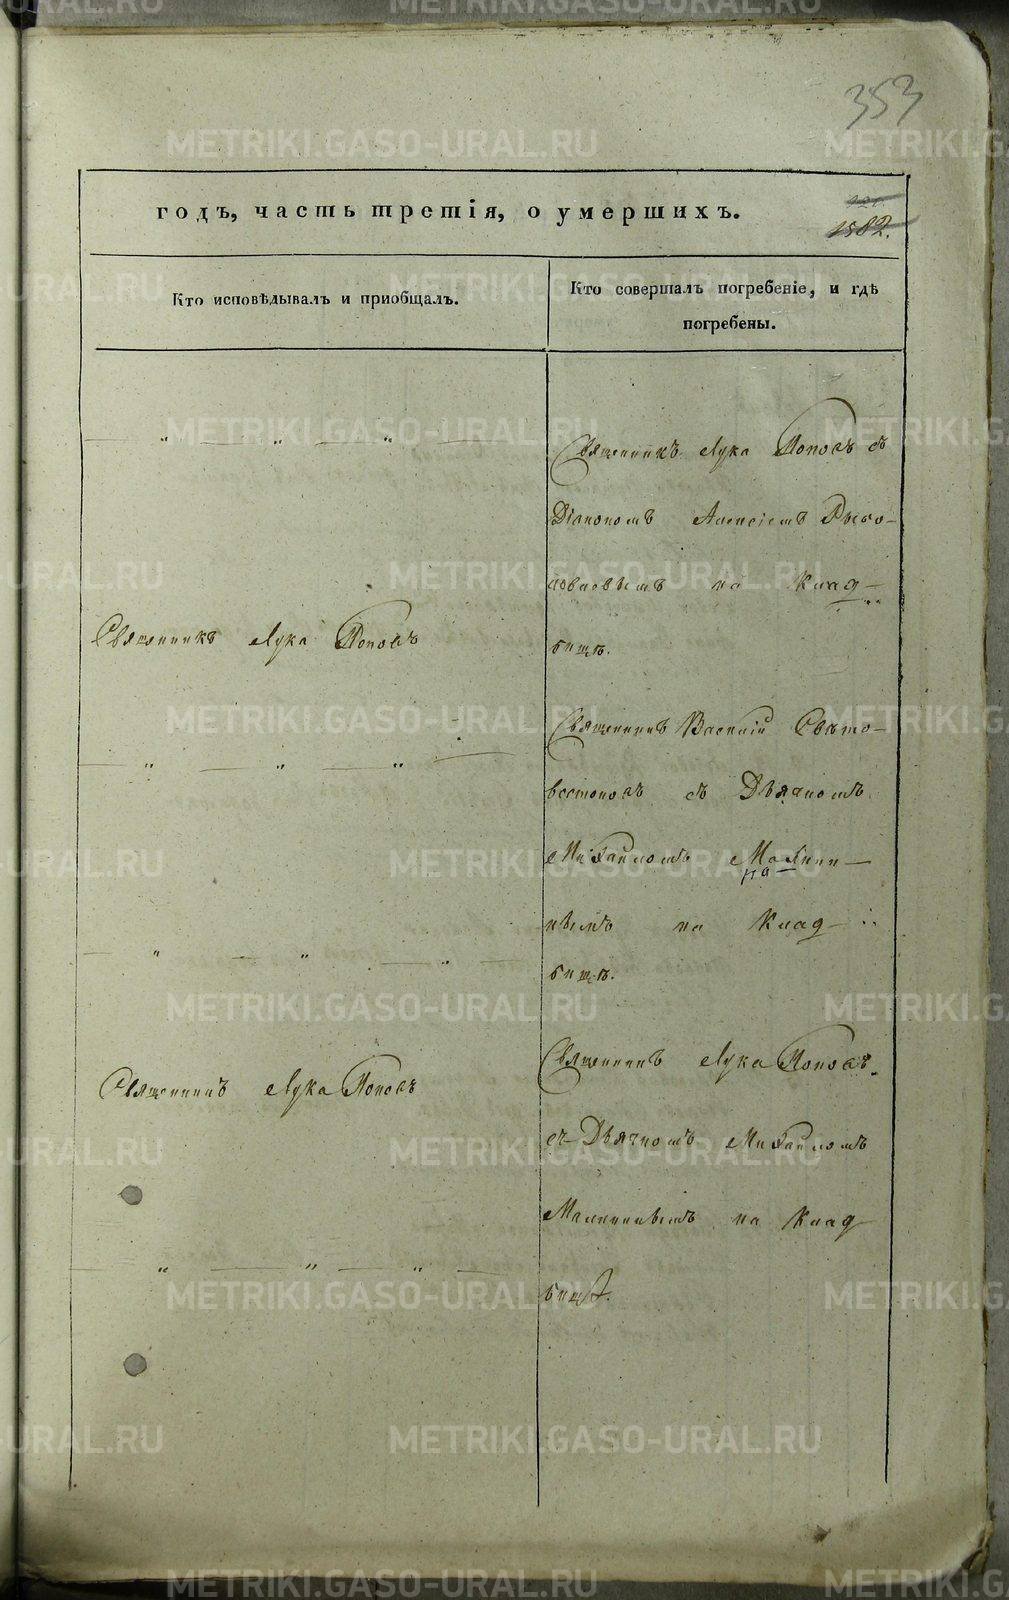 353
годъ, часть третія, о умершихъ.
1582.
Кто исповѣдывалъ и пріобщалъ.
Кто совершалъ погребеніе, и гдѣ
погребены.
Священникъ Лука Поповъ съ
Діакономъ Алексіемъ
на клад-
бищѣ.
Священникъ Лука Поповъ
Священникъ Василій Свѣто-
востоковъ съ Дьячкомъ
Михайломъ
на клад-
бищѣ.
Священникъ Лука Поповъ
Священникъ Лука Поповъ
съ Дьячкомъ Михайломъ
на клад-
бищѣ.
METRIKI.GASO-URAL.RU